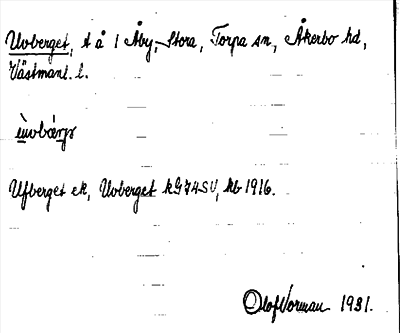 Uvberget, t å 1 Åby, Stora, Torpa sn, Åkerbo hd,
Västmanl. l.
Ufberget ek, Uvberget kG74SV, kb 1916.
Olof Norman 1931.